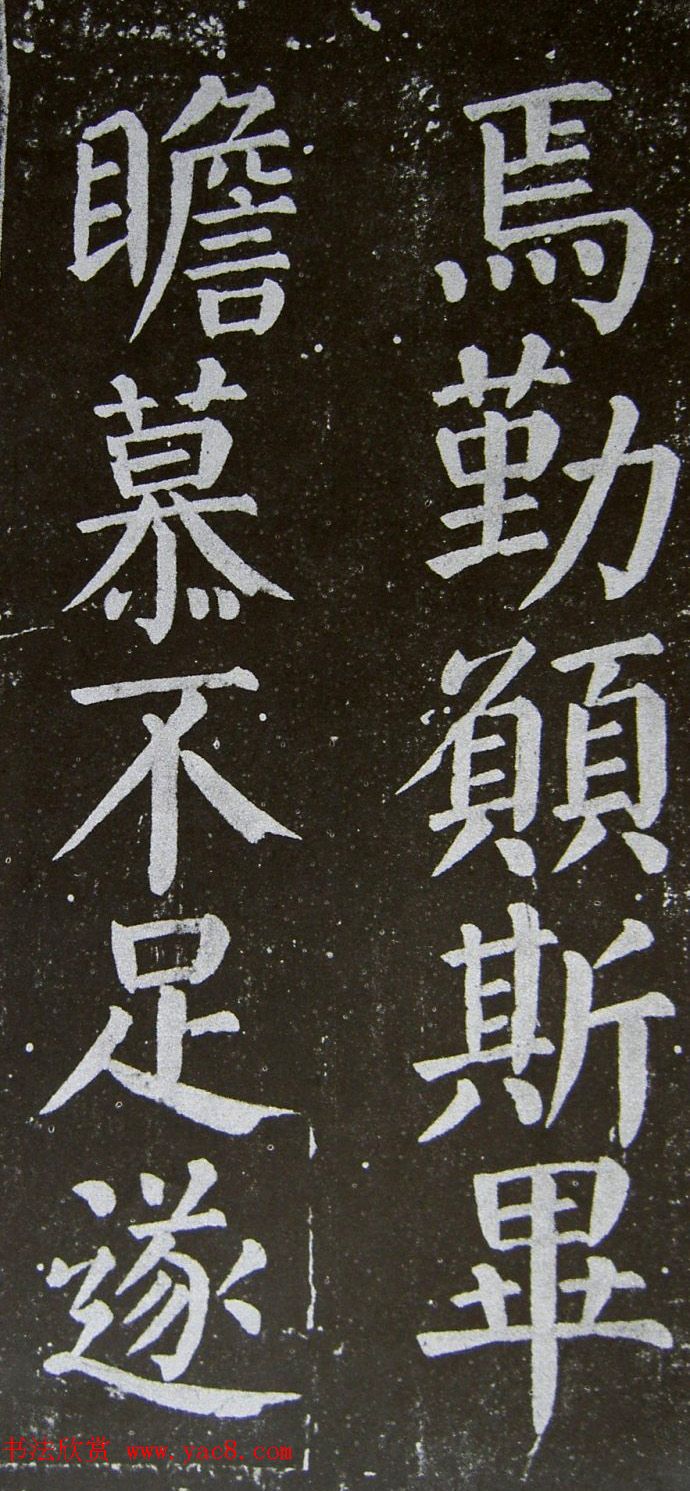 焉勤願斯畢
瞻慕不足遂
书法欣赏 www.yac8.com